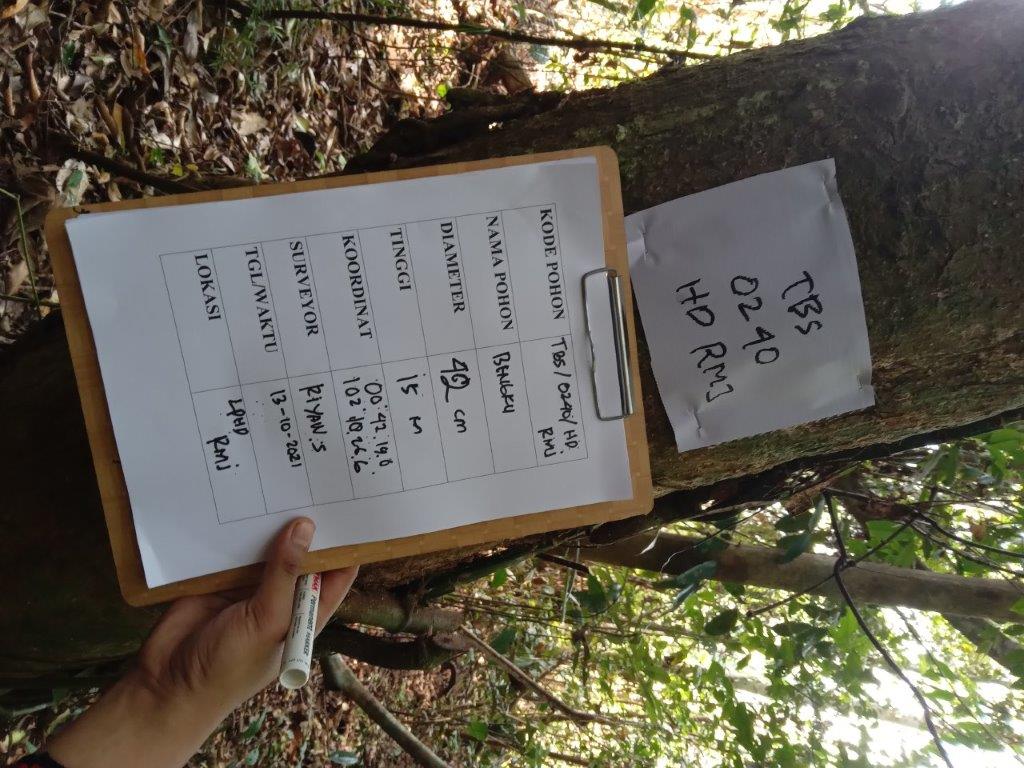 TBS
0240
HD RMJ
KODE POHON TBS/0240/HD
RMJ
NAMA POHON BENGKU
DIAMETER 42 cm
TINGGI 15 M
KOORDINAT 00°42'.19.0
102°.10'.26.6
SURVEYOR RIYAN.S
TGL/WAKTU 13-10-2021
LOKASI LPHD
RMJ
Permanent MARKER